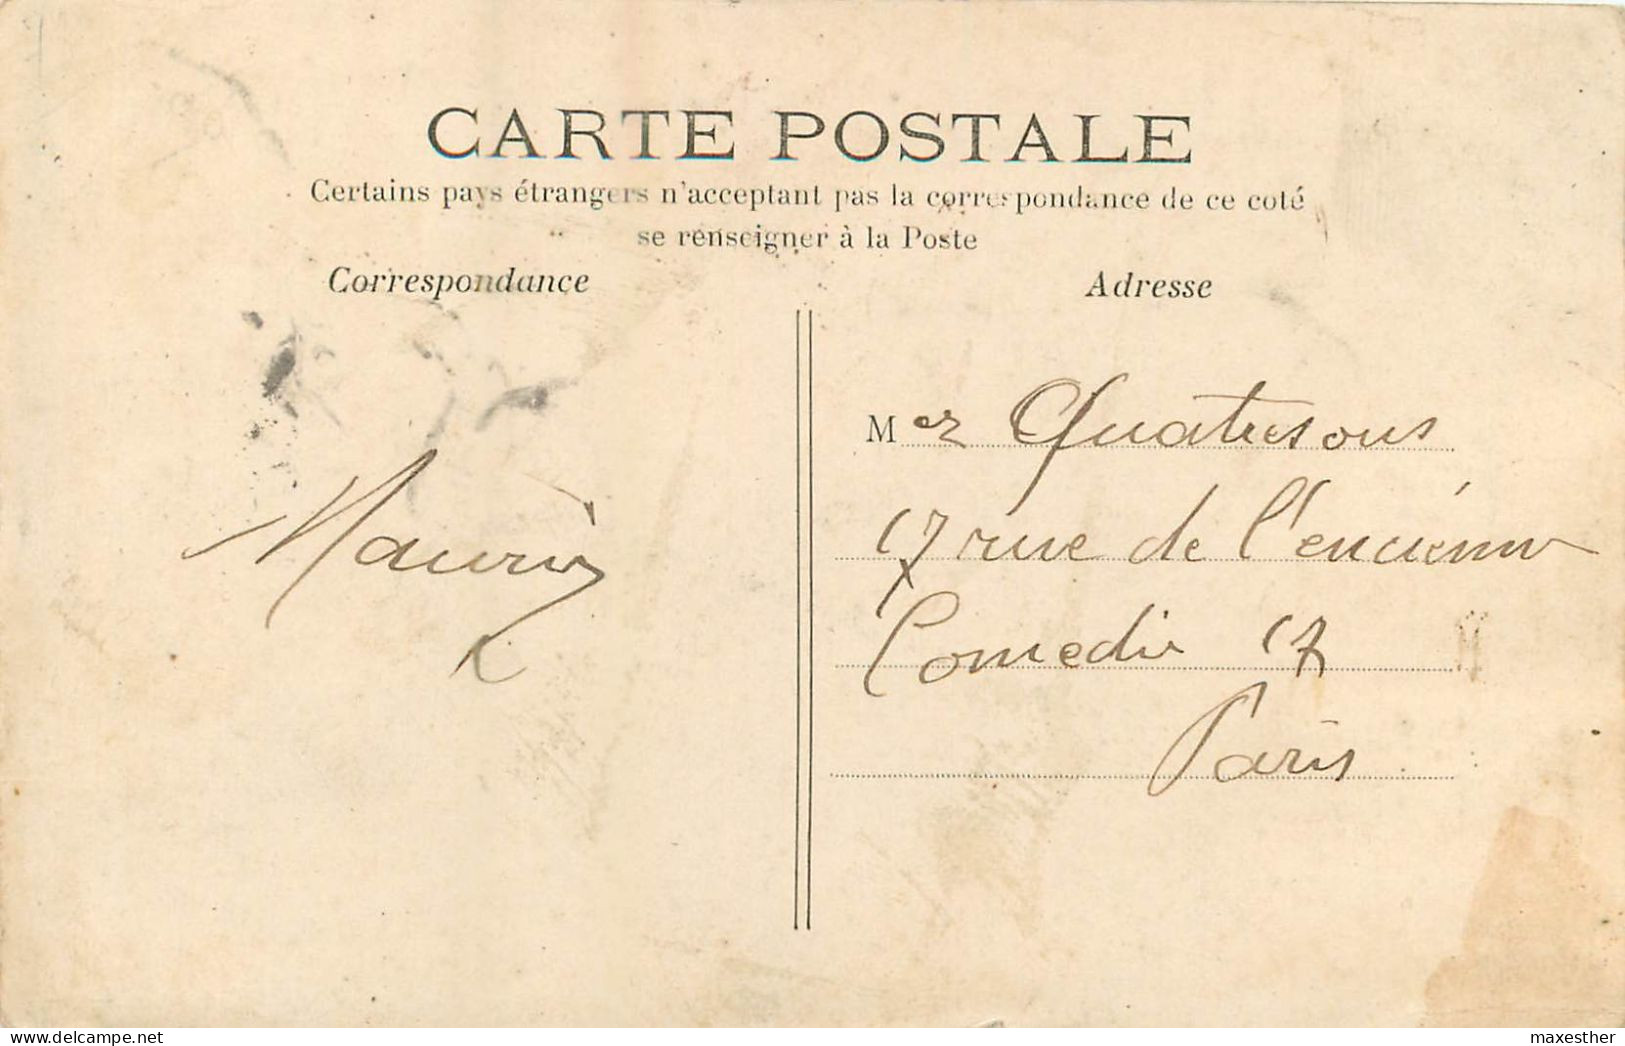 CARTE POSTALE
Certains pays étrangers n'acceptant pas la correspondance de ce coté
se renseigner à la Poste
Correspondance
Adresse
Mer Quatresous
17 rue de l'encienne
Comedie 17
Paris
Maurice
https://www.delcampe.net
maxesther